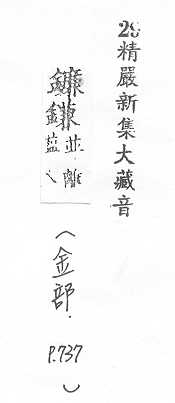 精嚴新集大藏音
鐮鎌並離
(金部.
P.737)